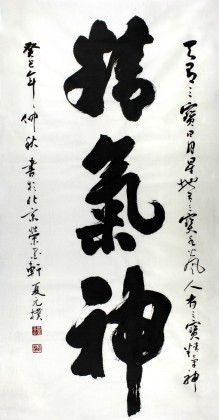 天有三寶日月星地有三寶水火風人有三寶精氣神
精氣神
癸巳年仲秋書於北京榮軒夏元